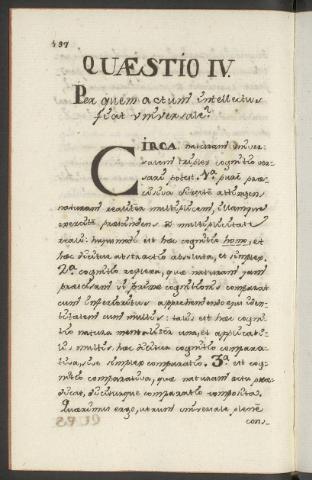 487
QUÆSTIO IV.
Per quem actum intellectus
fiat universale?
CIRCA naturam univer-
salem triplex cognitio ver-
sari potest. 1.ª pure præ-
cisiva directe attingens
naturam realiter multiplicem, illamque
præscindens à multiplicitate
reali: hujusmodi est hæc cognitio homo, et
hæc dicitur abstractio absoluta, et simplex.
2.ª cognitio reflexa, quæ naturam jam
præcisam vi primæ cognitionis comparat
cum inferioribus apprehendendo ejus iden-
titatem cum multis: talis est hæc cognitio
natura mentaliter una, et applicabi-
lis multis: hæc dicitur cognitio compara-
tiva, sive simplex comparatio. 3.ª est cog-
nitio comparativa, quæ naturam actu præ-
dicat, diciturque comparatio composita.
Quærimus ergo, utrum universale plene
cons-